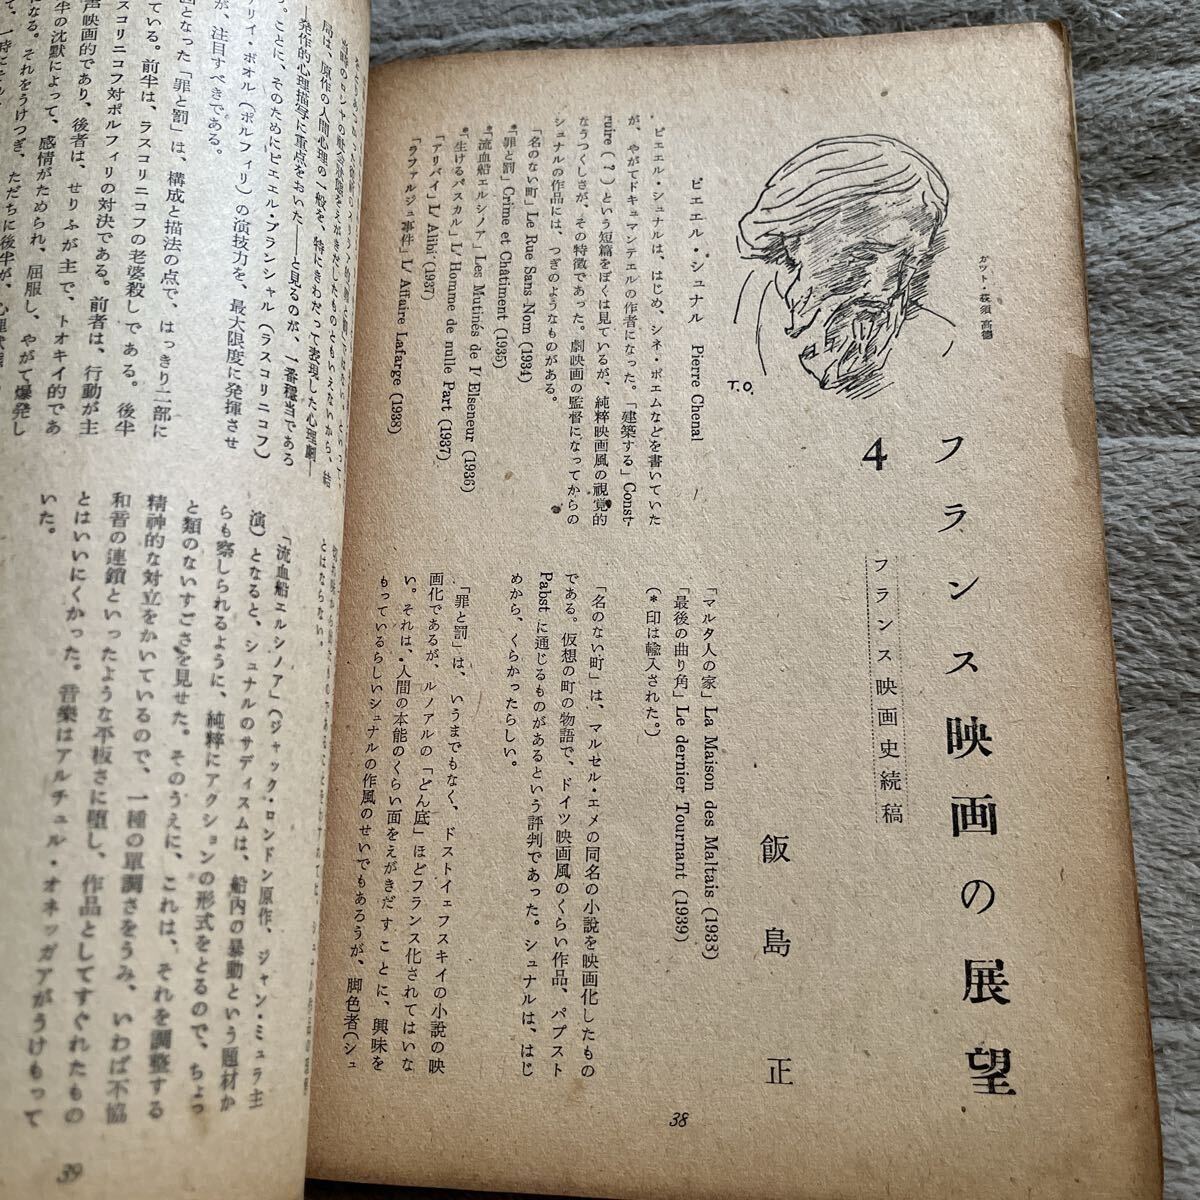 フランス映画の展望
4
フランス映画史続稿
飯島正
カット・荻須高徳
T.O.
ピエエル・シュナル Pierre Chenal
ピエエル・シュナルは、はじめ、シネ・ポエムなどを書いていた
が、やがてドキュマンテエルの作者になった。「建築する」Const-
ruire (?) という短篇をぼくは見ているが、純粋映画風の視覚的
なうつくしさが、その特徴であった。劇映画の監督になってからの
シュナルの作品には、つぎのようなものがある。
「名のない町」Le Rue Sans Nom (1934)
*「罪と罰」Crime et Châtiment (1935)
*「流血船エルシノア」Les Mutinés de l/ Elseneur (1936)
*「生けるパスカル」L/ Homme de nulle Part (1937)
「アリバイ」L/ Alibi (1937)
「ラファルジュ事件」L/ Affaire Lafarge (1938)
「マルタ人の家」La Maison des Maltais (1938)
「最後の曲り角」Le dernier Tournant (1939)
(*印は輸入された。)
「名のない町」は、マルセル・エメの同名の小説を映画化したもの
である。仮想の町の物語で、ドイツ映画風のくらい作品、パプスト
Pabst に通じるものがあるという評判であった。シュナルは、はじ
めから、くらかったらしい。
「罪と罰」は、いうまでもなく、ドストイェフスキイの小説の映
画化であるが、ルノアルの「どん底」ほどフランス化されてはいな
い。それは、人間の本能のくらい面をえがきだすことに、興味を
もっているらしいシュナルの作風のせいでもあろうが、脚色者(シュ
38
局は、原作の人間心理の一般を、特にきわだって表現した心理劇—
—発作的心理描写に重点をおいた——と見るのが、一番穏当である
う。ことに、そのためにピエエル・ブランシャル(ラスコリニコフ)
アリイ・ボオル(ポルフィリ)の演技力を、最大限度に発揮させ
が、注目すべきである。
因となった「罪と罰」は、構成と描法の点で、はっきり二部に
ている。前半は、ラスコリニコフの老婆殺しである。後半
スコリニコフ対ポルフィリの対決である。前者は、行動が主
声映画的であり、後者は、せりふが主で、トオキイ的であ
半の沈黙によって、感情がためられ、屈服し、やがて爆発し
になる。それをうけつぎ、ただちに後半が、
とはならない。
「流血船エルシノア」(ジャック・ロンドン原作、ジャン・ミュラ主
演)となると、シュナルのサディスムは、船内の暴動という題材か
らも察しられるように、純粋にアクションの形式をとるので、ちょっ
と類のないすごさを見せた。そのうえに、これは、それを調整する
精神的な対立をかいているので、一種の單調さをうみ、いわば不協
和音の連鎖といったような平板さに堕し、作品としてすぐれたもの
とはいいにくかった。音楽はアルチュル・オネッガアがうけもって
いた。
39